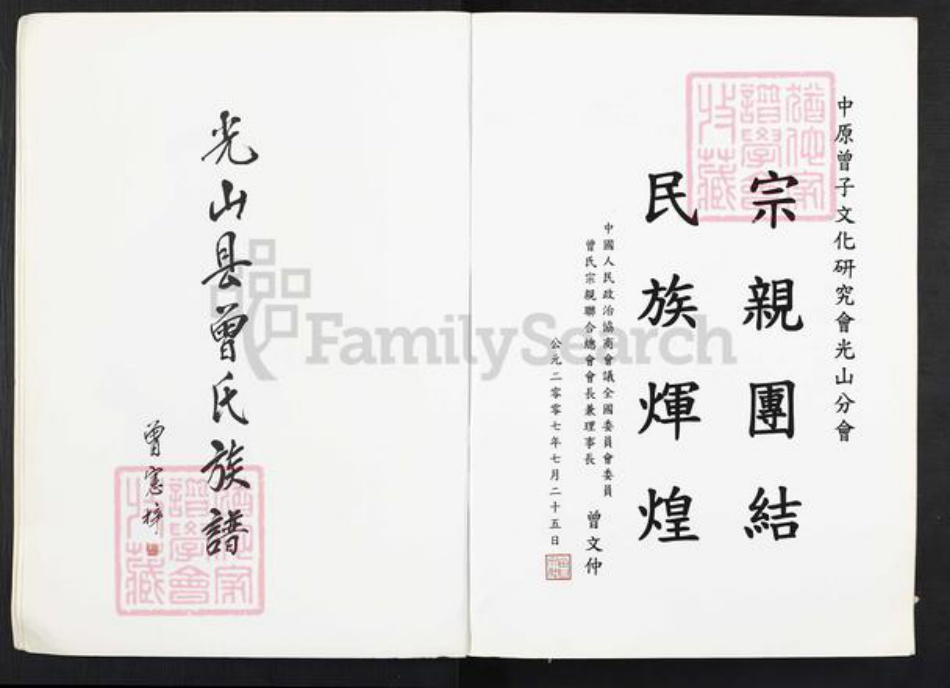 中原曾子文化研究會光山分會
宗親團結
民族輝煌
中國人民政治協商會議全國委員會委員
曾氏宗親聯合總會會長兼理事長
曾文仲
公元二零零七年七月二十五日
光山县曾氏族譜
曾憲梓
譜學會
收藏
譜學會
收藏
FamilySearch